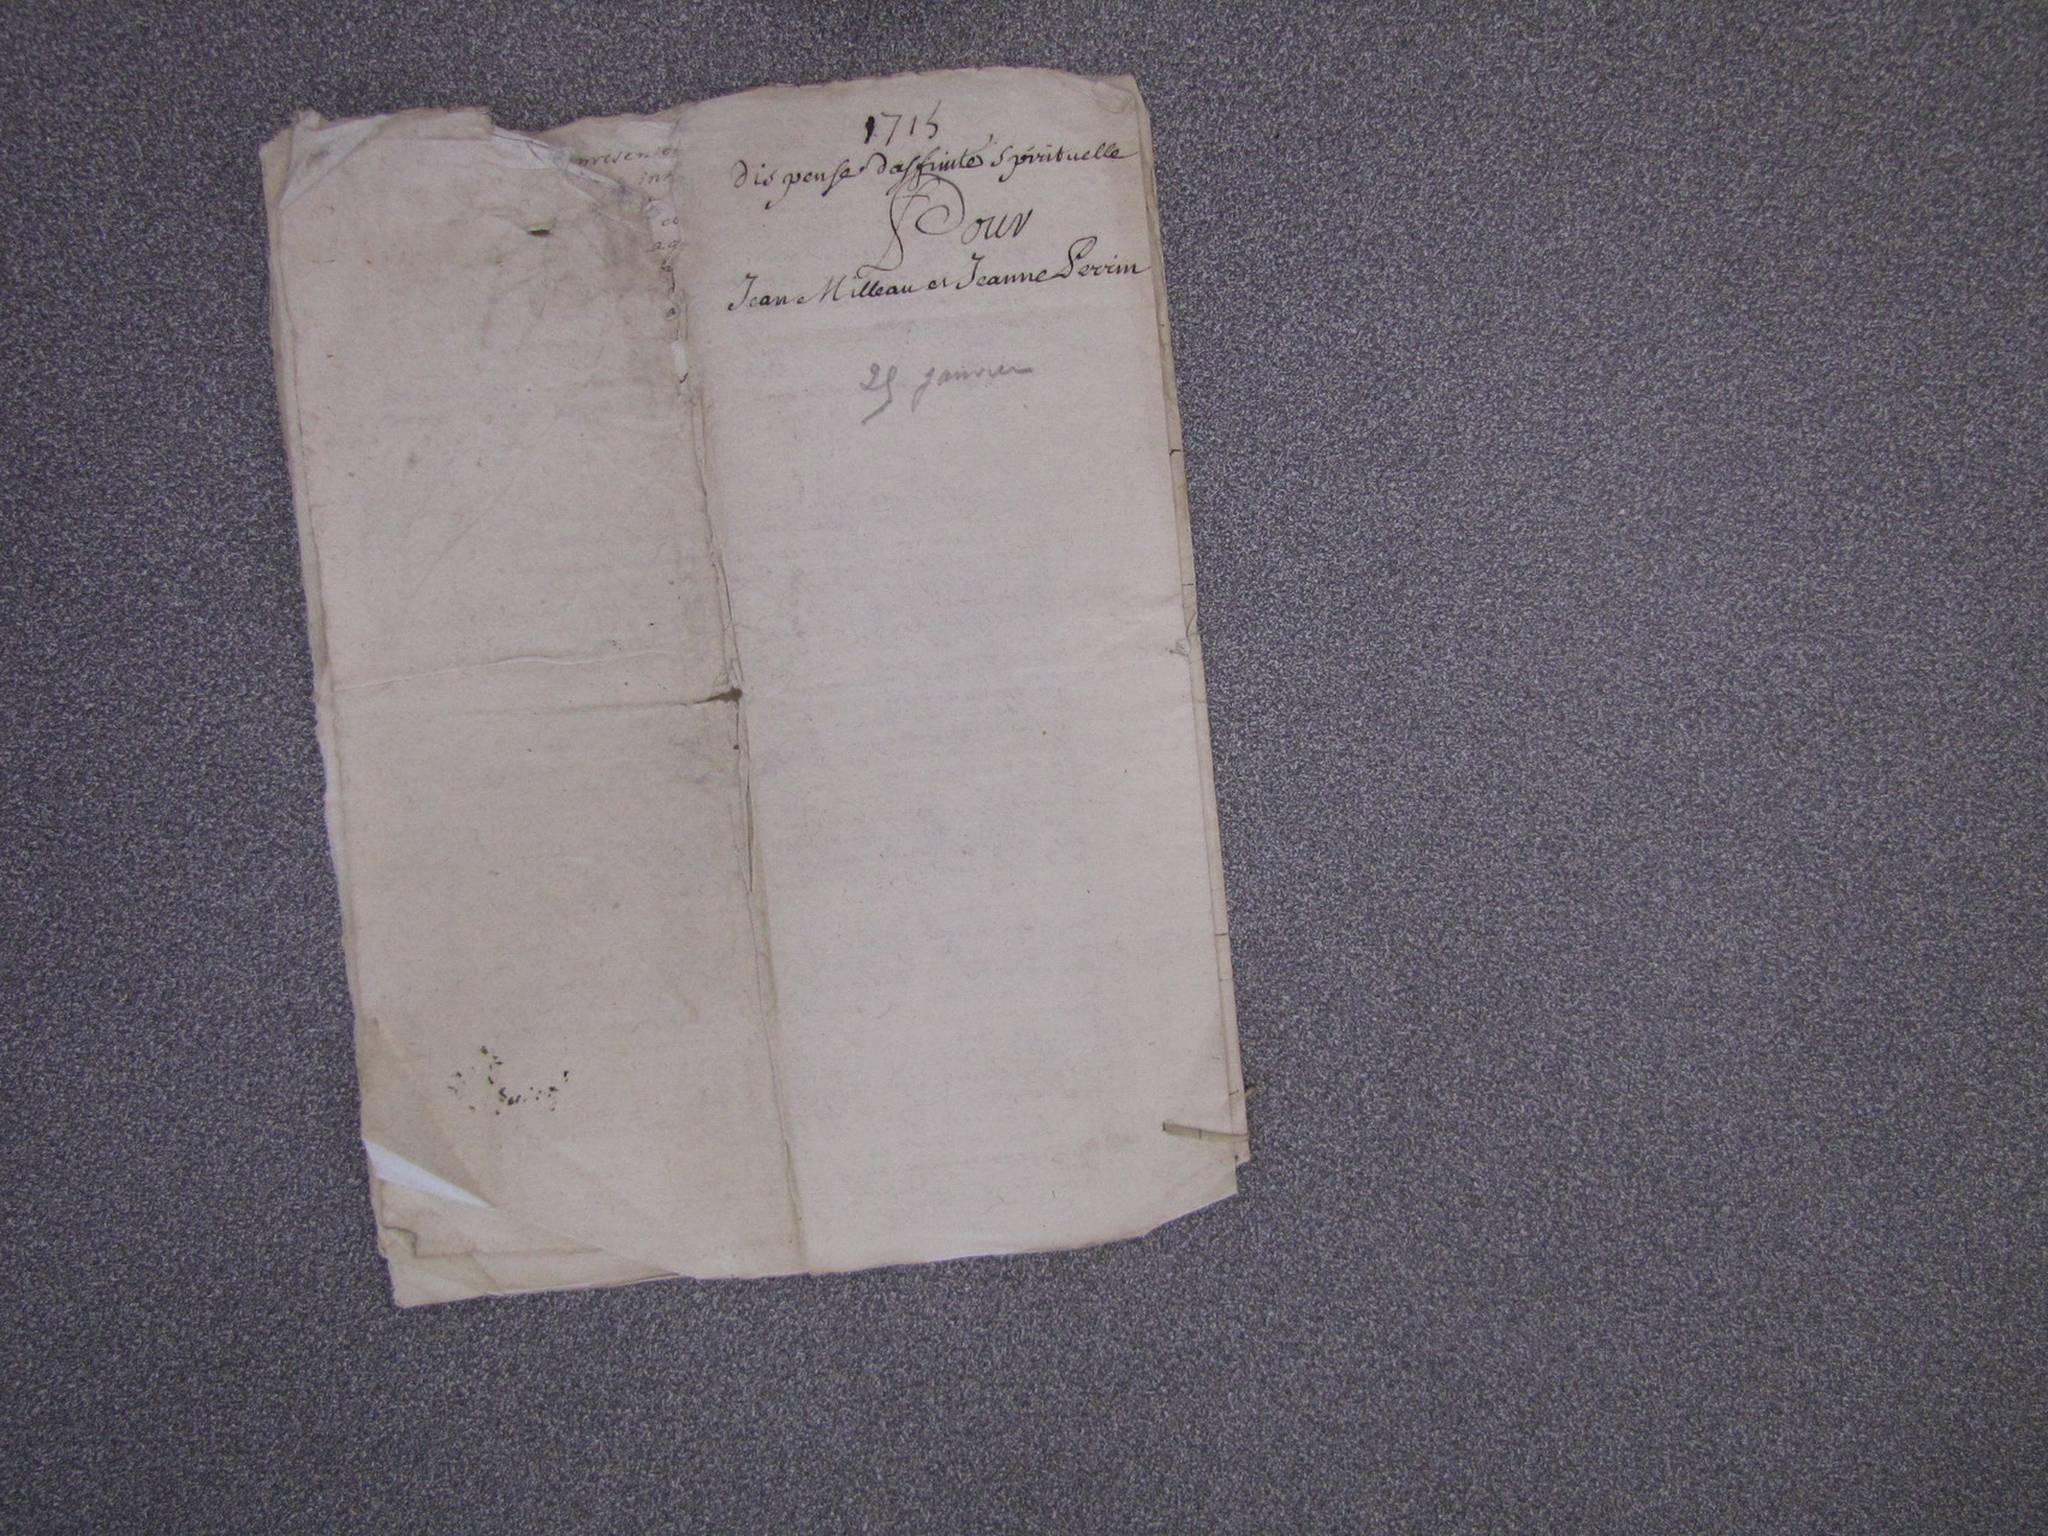 1715
dispense daffinité spirituelle
Pour
Jean Milleau et Jeanne Perrin
25 janvier